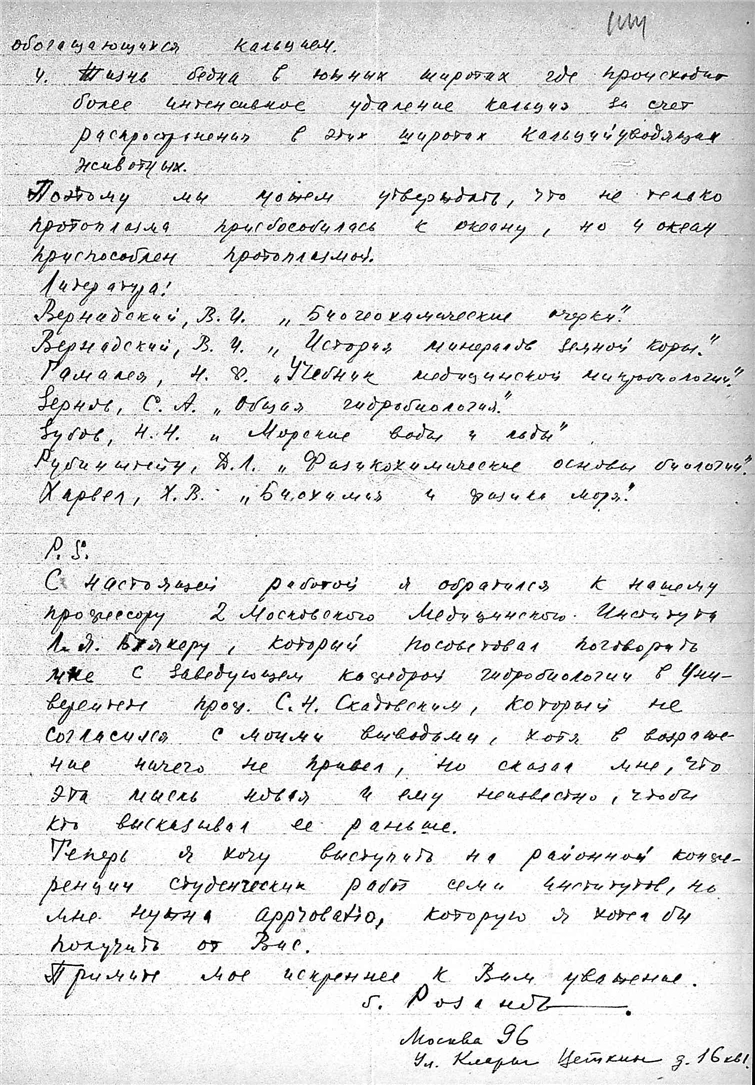 обогащающихся кальцием.
4. Жизнь бедна в южных широтах где происходит
более интенсивное удаление кальция за счет
распространения в этих широтах кальцийуводящих
животных.
Поэтому мы можем утверждать, что не только
протоплазма приспособилась к океану, но и океан
приспособлен протоплазмой.
Литература:
Вернадский, В.И. „Биогеохимические очерки".
Вернадский, В.И. „История минералов земной коры."
Гамалея, Н.Ф. „Учебник медицинской микробиологии".
Зернов, С.А. „Общая гидробиология".
Зубов, Н.Н. „Морские воды и льды"
Рубинштейн, Д.Л. „Физикохимические основы биологии".
Харвей, Х.В. „Биохимия и физика моря".
P.S.
С настоящей работой я обратился к нашему
профессору 2 Московского Медицинского Института
Л.Я. Бляхеру, который посоветовал поговорить
мне с заведующем кафедрой гидробиологии в Уни-
верситете проф. С.Н. Скадовским, который не
согласился с моими выводами, хотя в возраже-
ние ничего не привел, но сказал мне, что
эта мысль новая и ему неизвестно, чтобы
кто высказывал ее раньше.
Теперь я хочу выступить на районной конфе-
ренции студенческих работ семи институтов, но
мне нужна approbatio, которую я хотел бы
получить от Вас.
Примите мое искреннее к Вам уважение.
Москва 96
Ул. Клары Цеткин д. 16 кв1